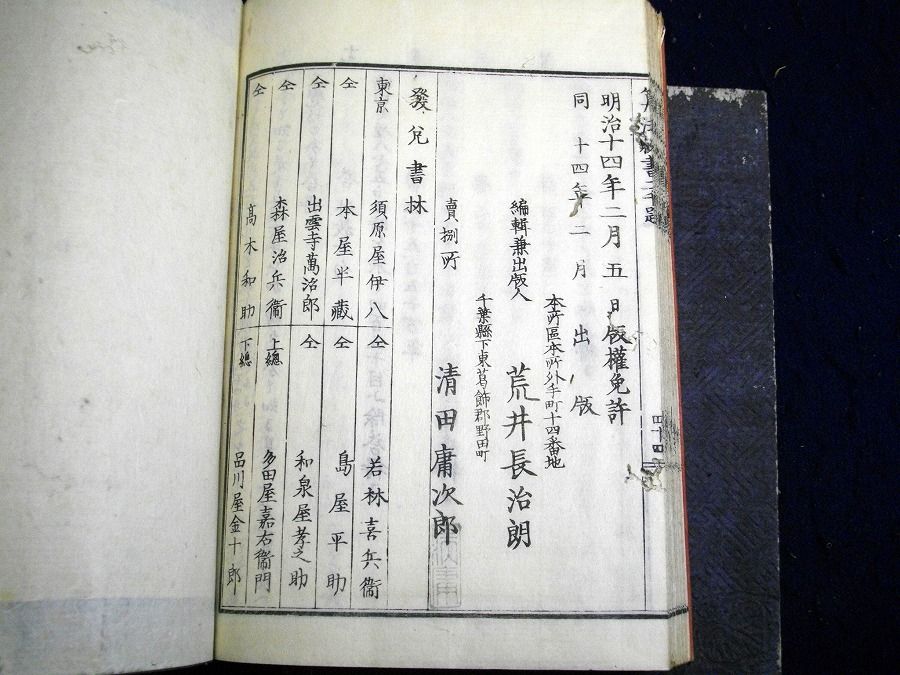 明治十四年二月五日版權免許
同十四年二月出版
本所區本所外手町十四番地
編輯兼出版人 荒井長治朗
千葉縣下東葛飾郡野田町
賣捌所 清田庸次郎
發兌書林
東京 須原屋伊八
仝 本屋半藏
仝 出雲寺萬治郎
仝 森屋治兵衞
仝 高木和助
仝 若林喜兵衞
仝 島屋平助
仝 和泉屋孝之助
上總 多田屋嘉右衞門
下總 品川屋金十郎